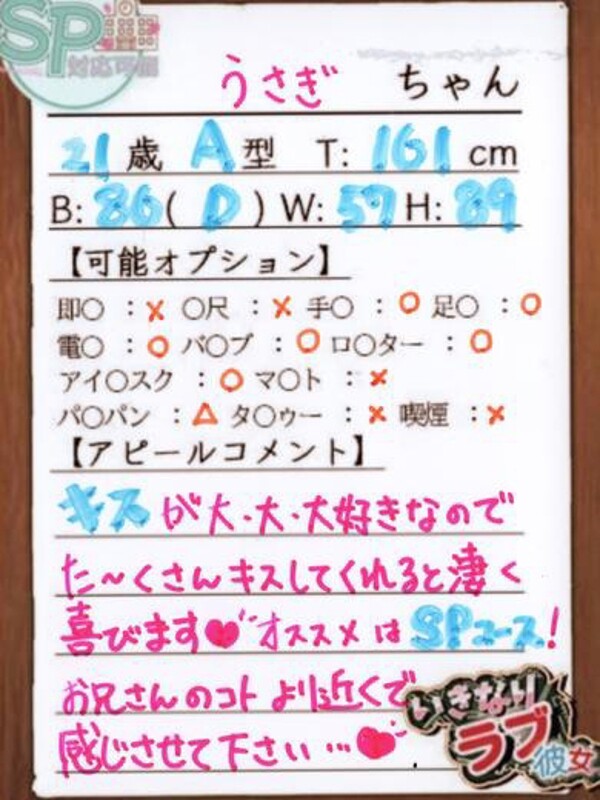 SP
対応可能
うさぎ ちゃん
21歳 A型 T:161cm
B:86(D) W:57 H:89
【可能オプション】
即〇:× 〇尺:× 手〇:○ 足〇:○
電〇:○ バ〇ブ:○ ロ〇ター:○
アイ〇スク:○ マ〇ト:×
パ〇パン:△ タ〇ゥー:× 喫煙:×
【アピールコメント】
キスが大・大・大好きなので
た〜くさんキスしてくれると凄く
喜びます♥オススメはSPコース!
お兄さんのコトより近くで
感じさせて下さい…♥
いきなり
ラブ
彼女